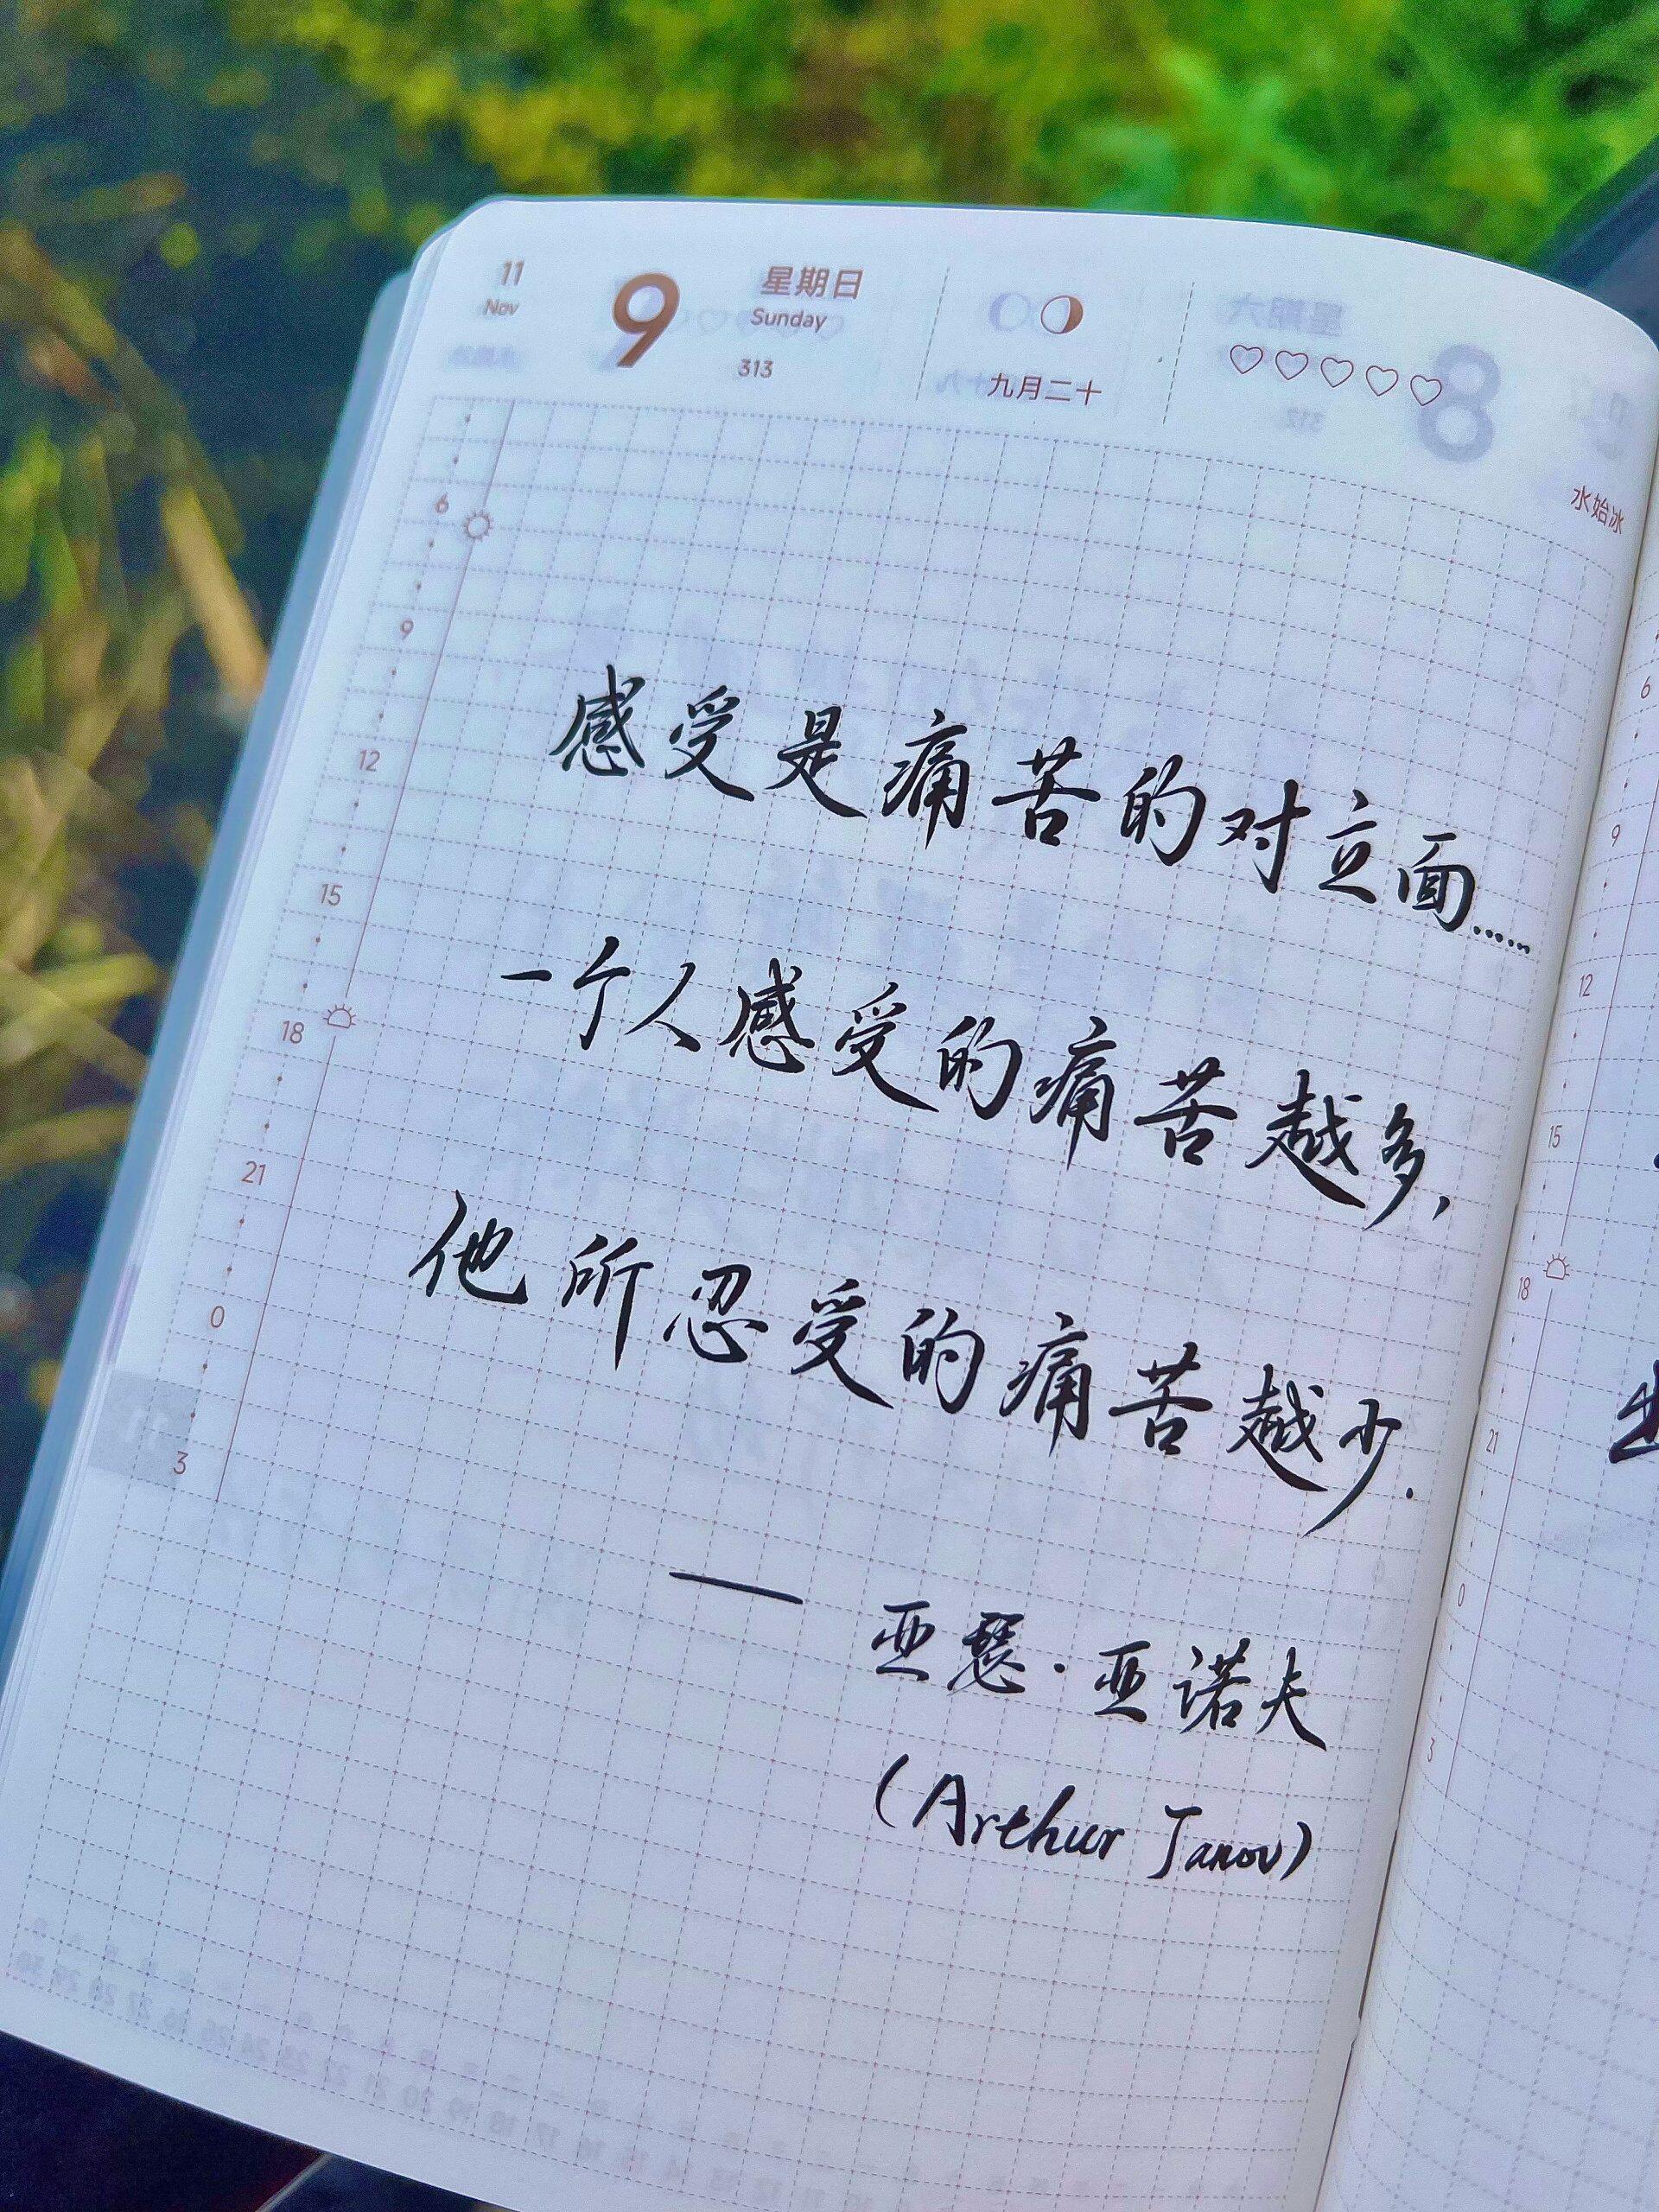 11
Nov
9
星期日
Sunday
313
九月二十
水始冰
6
9
12
15
18
21
0
3
感受是痛苦的对立面……
一个人感受的痛苦越多，
他所忍受的痛苦越少.
— 亚瑟·亚诺夫
(Arthur Janov)
6
9
12
15
18
21
0
3